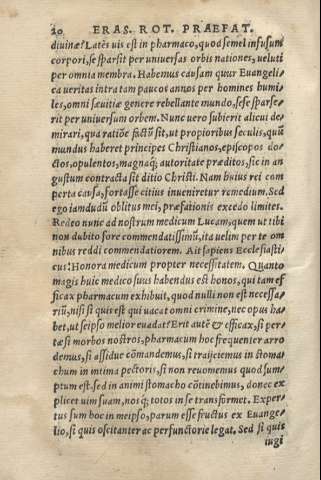 20 ERAS. ROT. PRAEFAT.
diuinæ? Latẽs uis est in pharmaco, quod semel infusum
corpori, se sparsit per uniuersas orbis nationes, ueluti
per omnia membra. Habemus causam quur Euangeli⸗
ca ueritas intra tam paucos annos per homines humi⸗
les, omni sæuitiæ genere rebellante mundo, sese sparse⸗
rit per uniuersum orbem. Nunc uero subierit alicui de
mirari, qua ratiõe factũ sit, ut propioribus seculis, quũ
mundus haberet principes Christianos, episcopos do⸗
ctos, opulentos, magnaq́; autoritate præditos, sic in an
gustum contracta sit ditio Christi. Nam huius rei com
perta causa, fortasse citius inueniretur remedium. Sed
ego iamdudũ oblitus mei, præfationis excedo limites.
Redeo nunc ad nostrum medicum Lucam, quem ut tibi
non dubito fore commendatissimũ, ita uelim per te om
nibus reddi commendatiorem. Ait sapiens Ecclesiasti⸗
cus: Honora medicum propter necessitatem. Quanto
magis huic medico suus habendus est honos, qui tam ef
ficax pharmacum exhibuit, quod nulli non est necessa⸗
riũ, nisi si quis est qui uacat omni crimine, nec opus ha⸗
bet, ut seipso melior euadat? Erit autẽ & efficax, si per⸗
tæsi morbos nostros, pharmacum hoc frequenter arro
demus, si assidue cõmandemus, si traijciemus in stoma⸗
chum in intima pectoris, si non reuomemus quod sum⸗
ptum est. sed in animi stomacho cõtinebimus, donec ex
plicet uim suam, nosq́; totos in se transformet. Exper⸗
tus sum hoc in meipso, parum esse fructus ex Euange⸗
lio, si quis oscitanter ac perfunctorie legat. Sed si quis
iugi